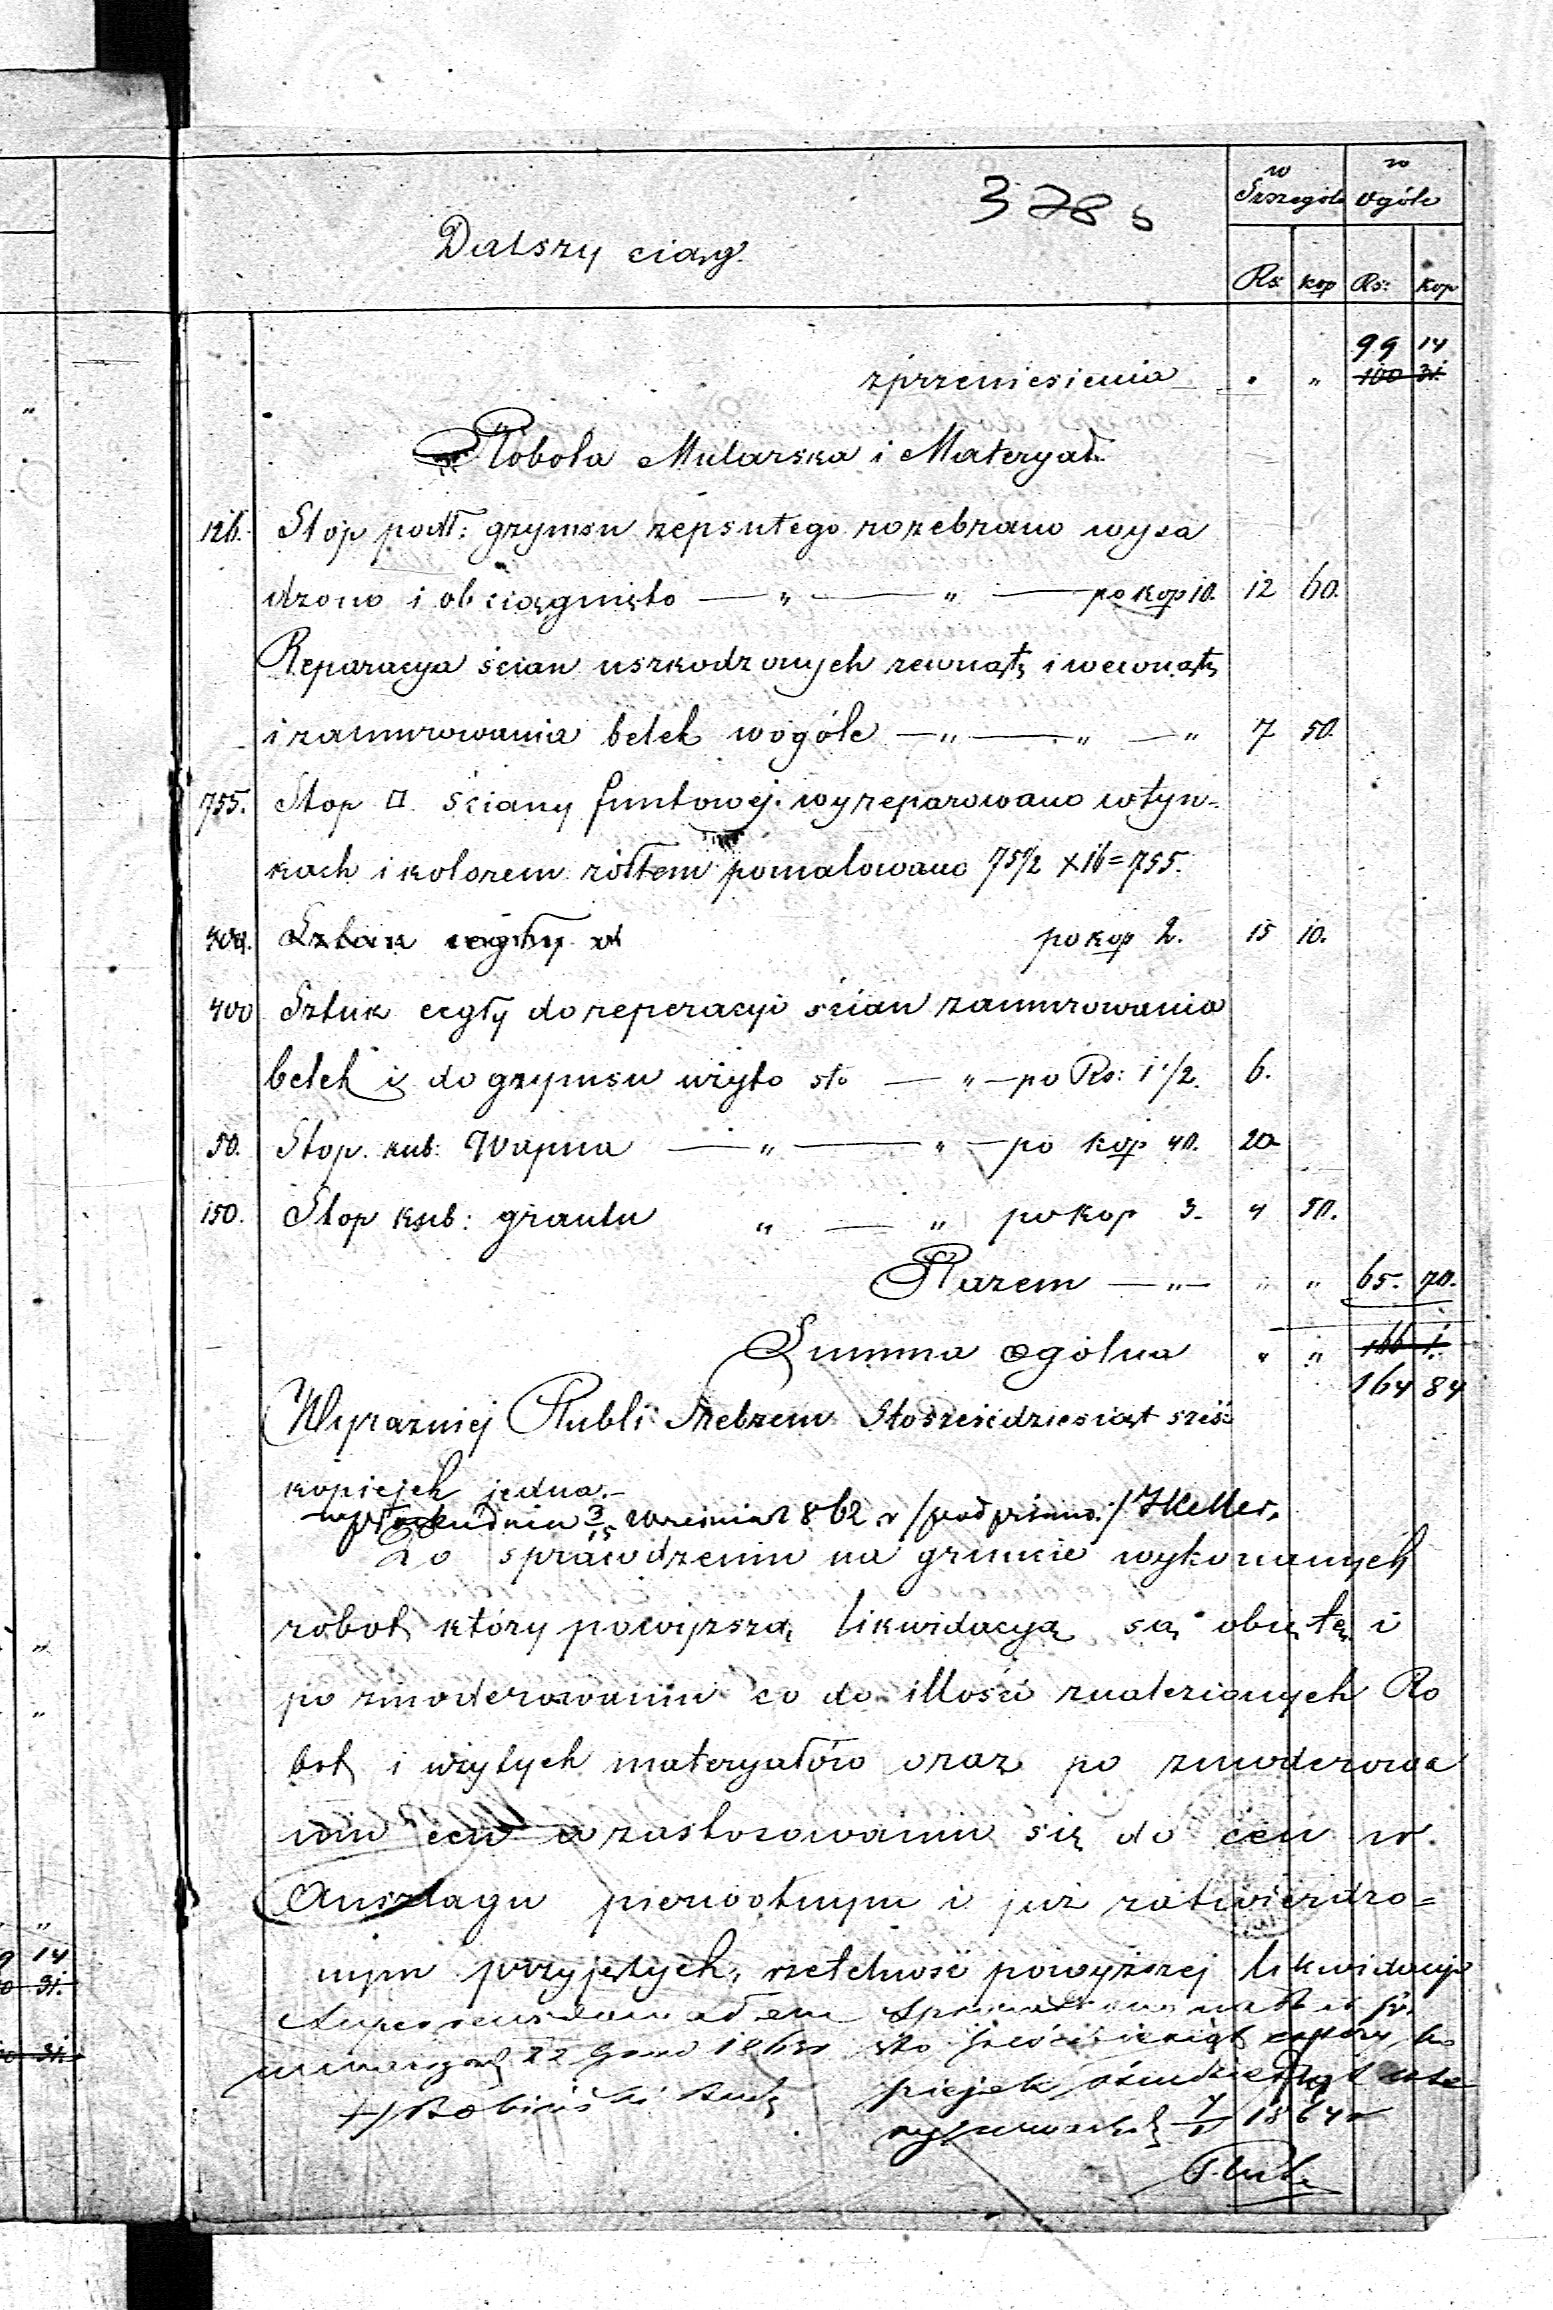 378
w Szczególe
w Ogóle
Dalszy ciąg.
Rs: kop Rs: kop
99 14
z przeniesienia " " 100 31.
Robota Mularska i Materyał.
126. Stop podł: gzymsu zepsutego rozebrano wysa
dzono i obciągnięto — " — " — po kop 10. 12 60.
Reparacya ścian uszkodzonych zewnątz i wewnątz
i zamurowania belek wogóle — " — " — " 7 50.
755. Stop □ ściany funtowej wyreparowano w tyn-
kach i kolorem żółtem pomalowano 75 1/2 x 10 = 755.
400. Sztuk cegły do po kop 2. 15 10.
400 Sztuk cegły do reperacyi ścian zamurowania
belek i do gzymsu użyto sto — " — po Rs: 1 1/2. 6.
50. Stop. kub: Wapna — " — " — po kop 40. 20
150. Stop kub: grantu " — " po kop 3. 4 50.
Razem — " — " " 65. 70.
Summa ogólna " " 166 1.
164 84
Wyraźniej Rubli Srebrem Stosześćdziesiąt sześć
kopiejek jedna.—
w dnia 3/15 Września 1862 r /podpisano:/ J Keller.
Po sprawdzeniu na gruncie wykonanych
robot, który powyższą likwidacyą są obięte i
po zmoderowaniu co do illości znalezionych Ro
bot i użytych materyałów oraz po zmoderowa
niu cen w zastosowaniu się do cen w
Anszlagu pierwotnym i już zatwierdzo=
nym przyjętych, rzetelność powyższej likwidacyi
22 186 sto sześćdziesiąt cztery ko
piejek ośmdziesiąt
1864 r
9 14
31.
31.